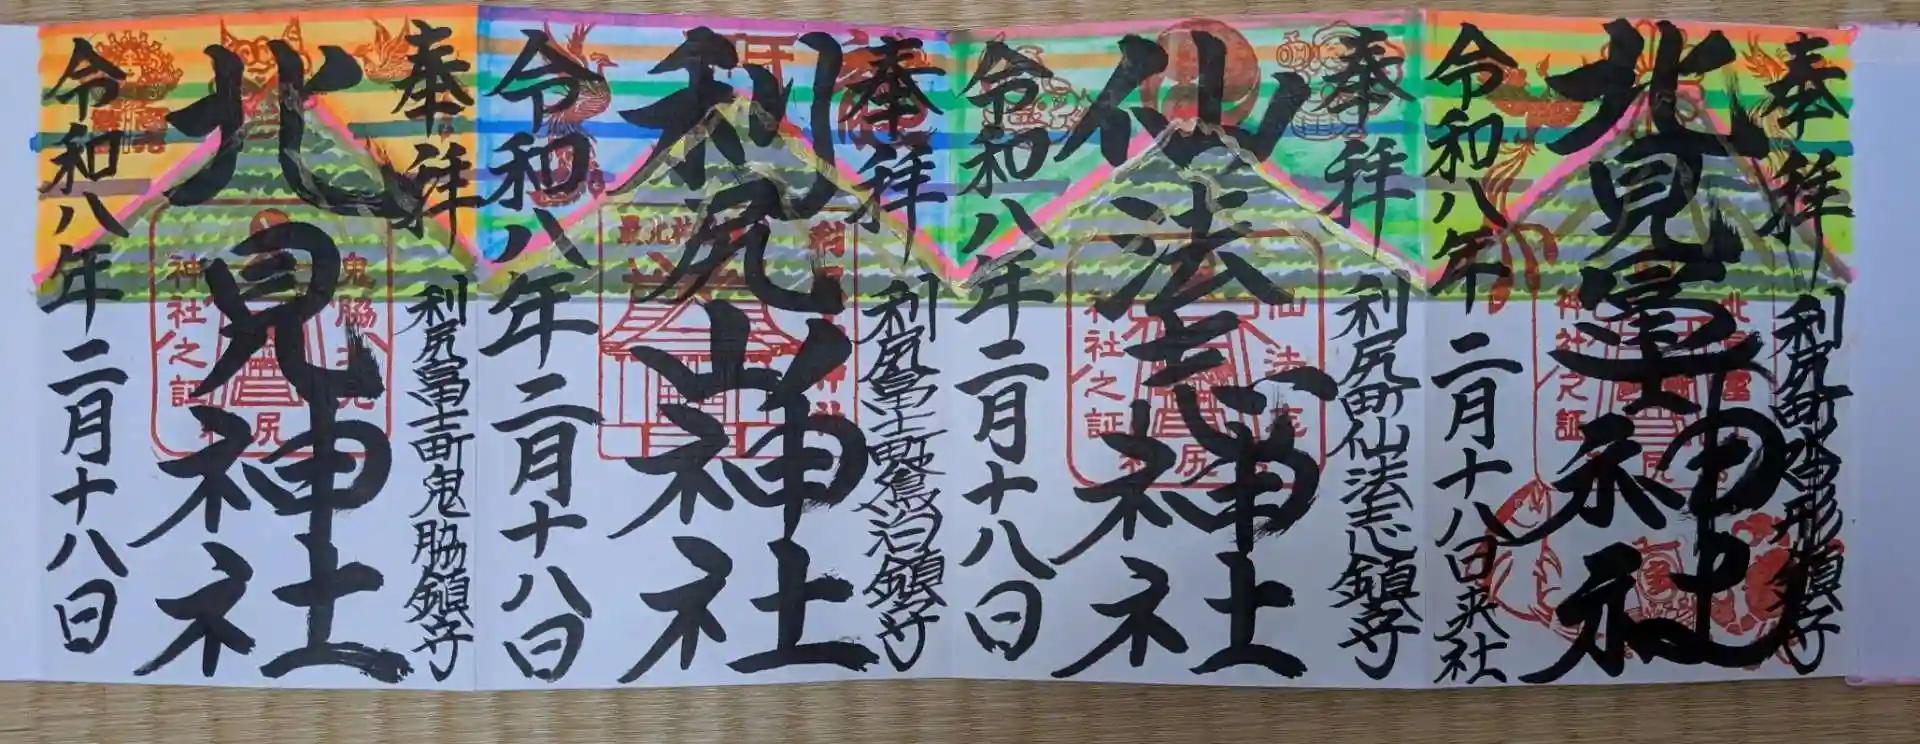 奉拝
利尻町沓形鎮守
北見冨士神社
令和八年二月十八日来社
奉拝
利尻町仙法志鎮守
仙法志神社
神社之証
令和八年二月十八日
奉拝
利尻富士町鴛泊鎮守
利尻山神社
令和八年二月十八日
奉拝
利尻富士町鬼脇鎮守
北見神社
神社之証
令和八年二月十八日